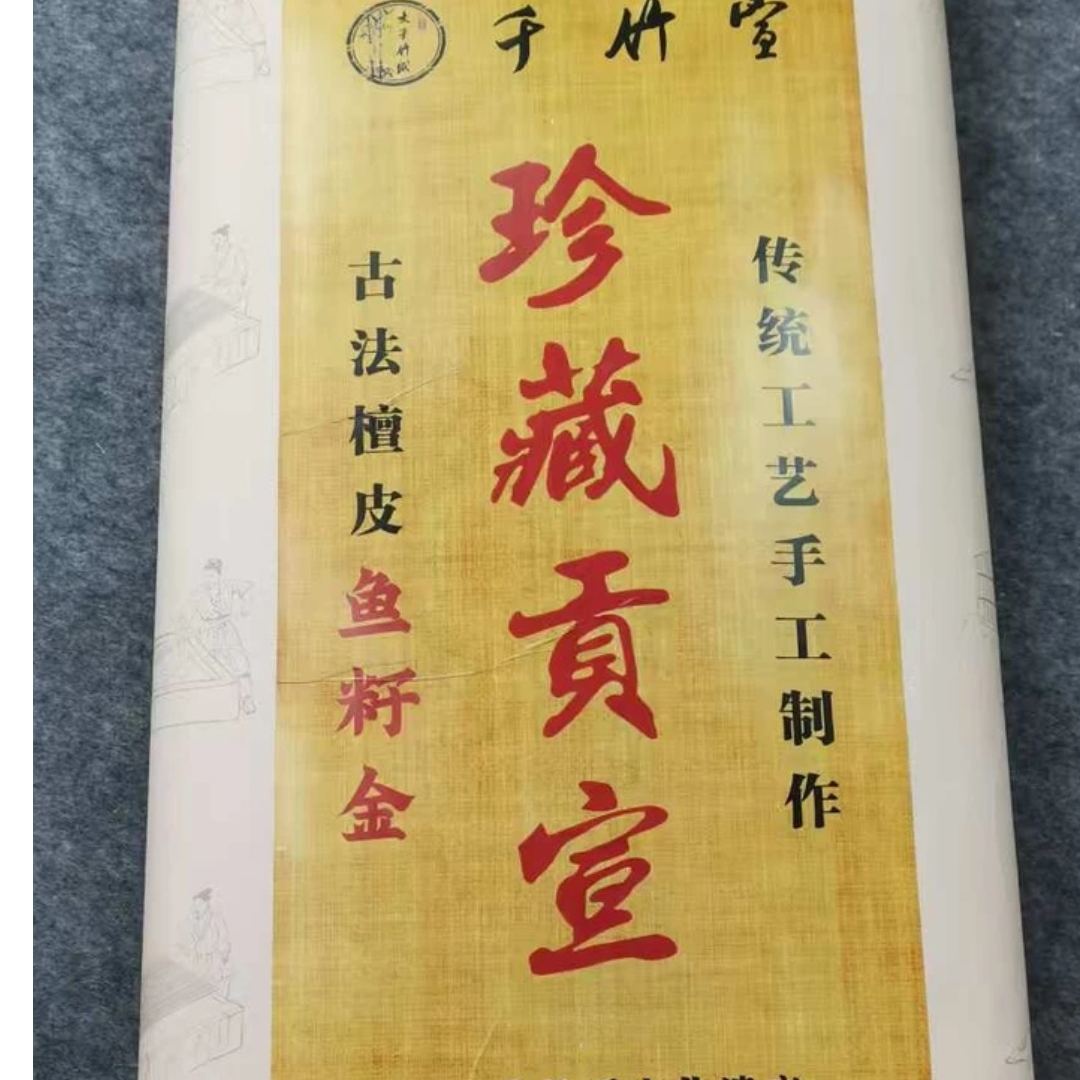 千竹宣
珍藏贡宣
传统工艺手工制作
古法檀皮鱼籽金